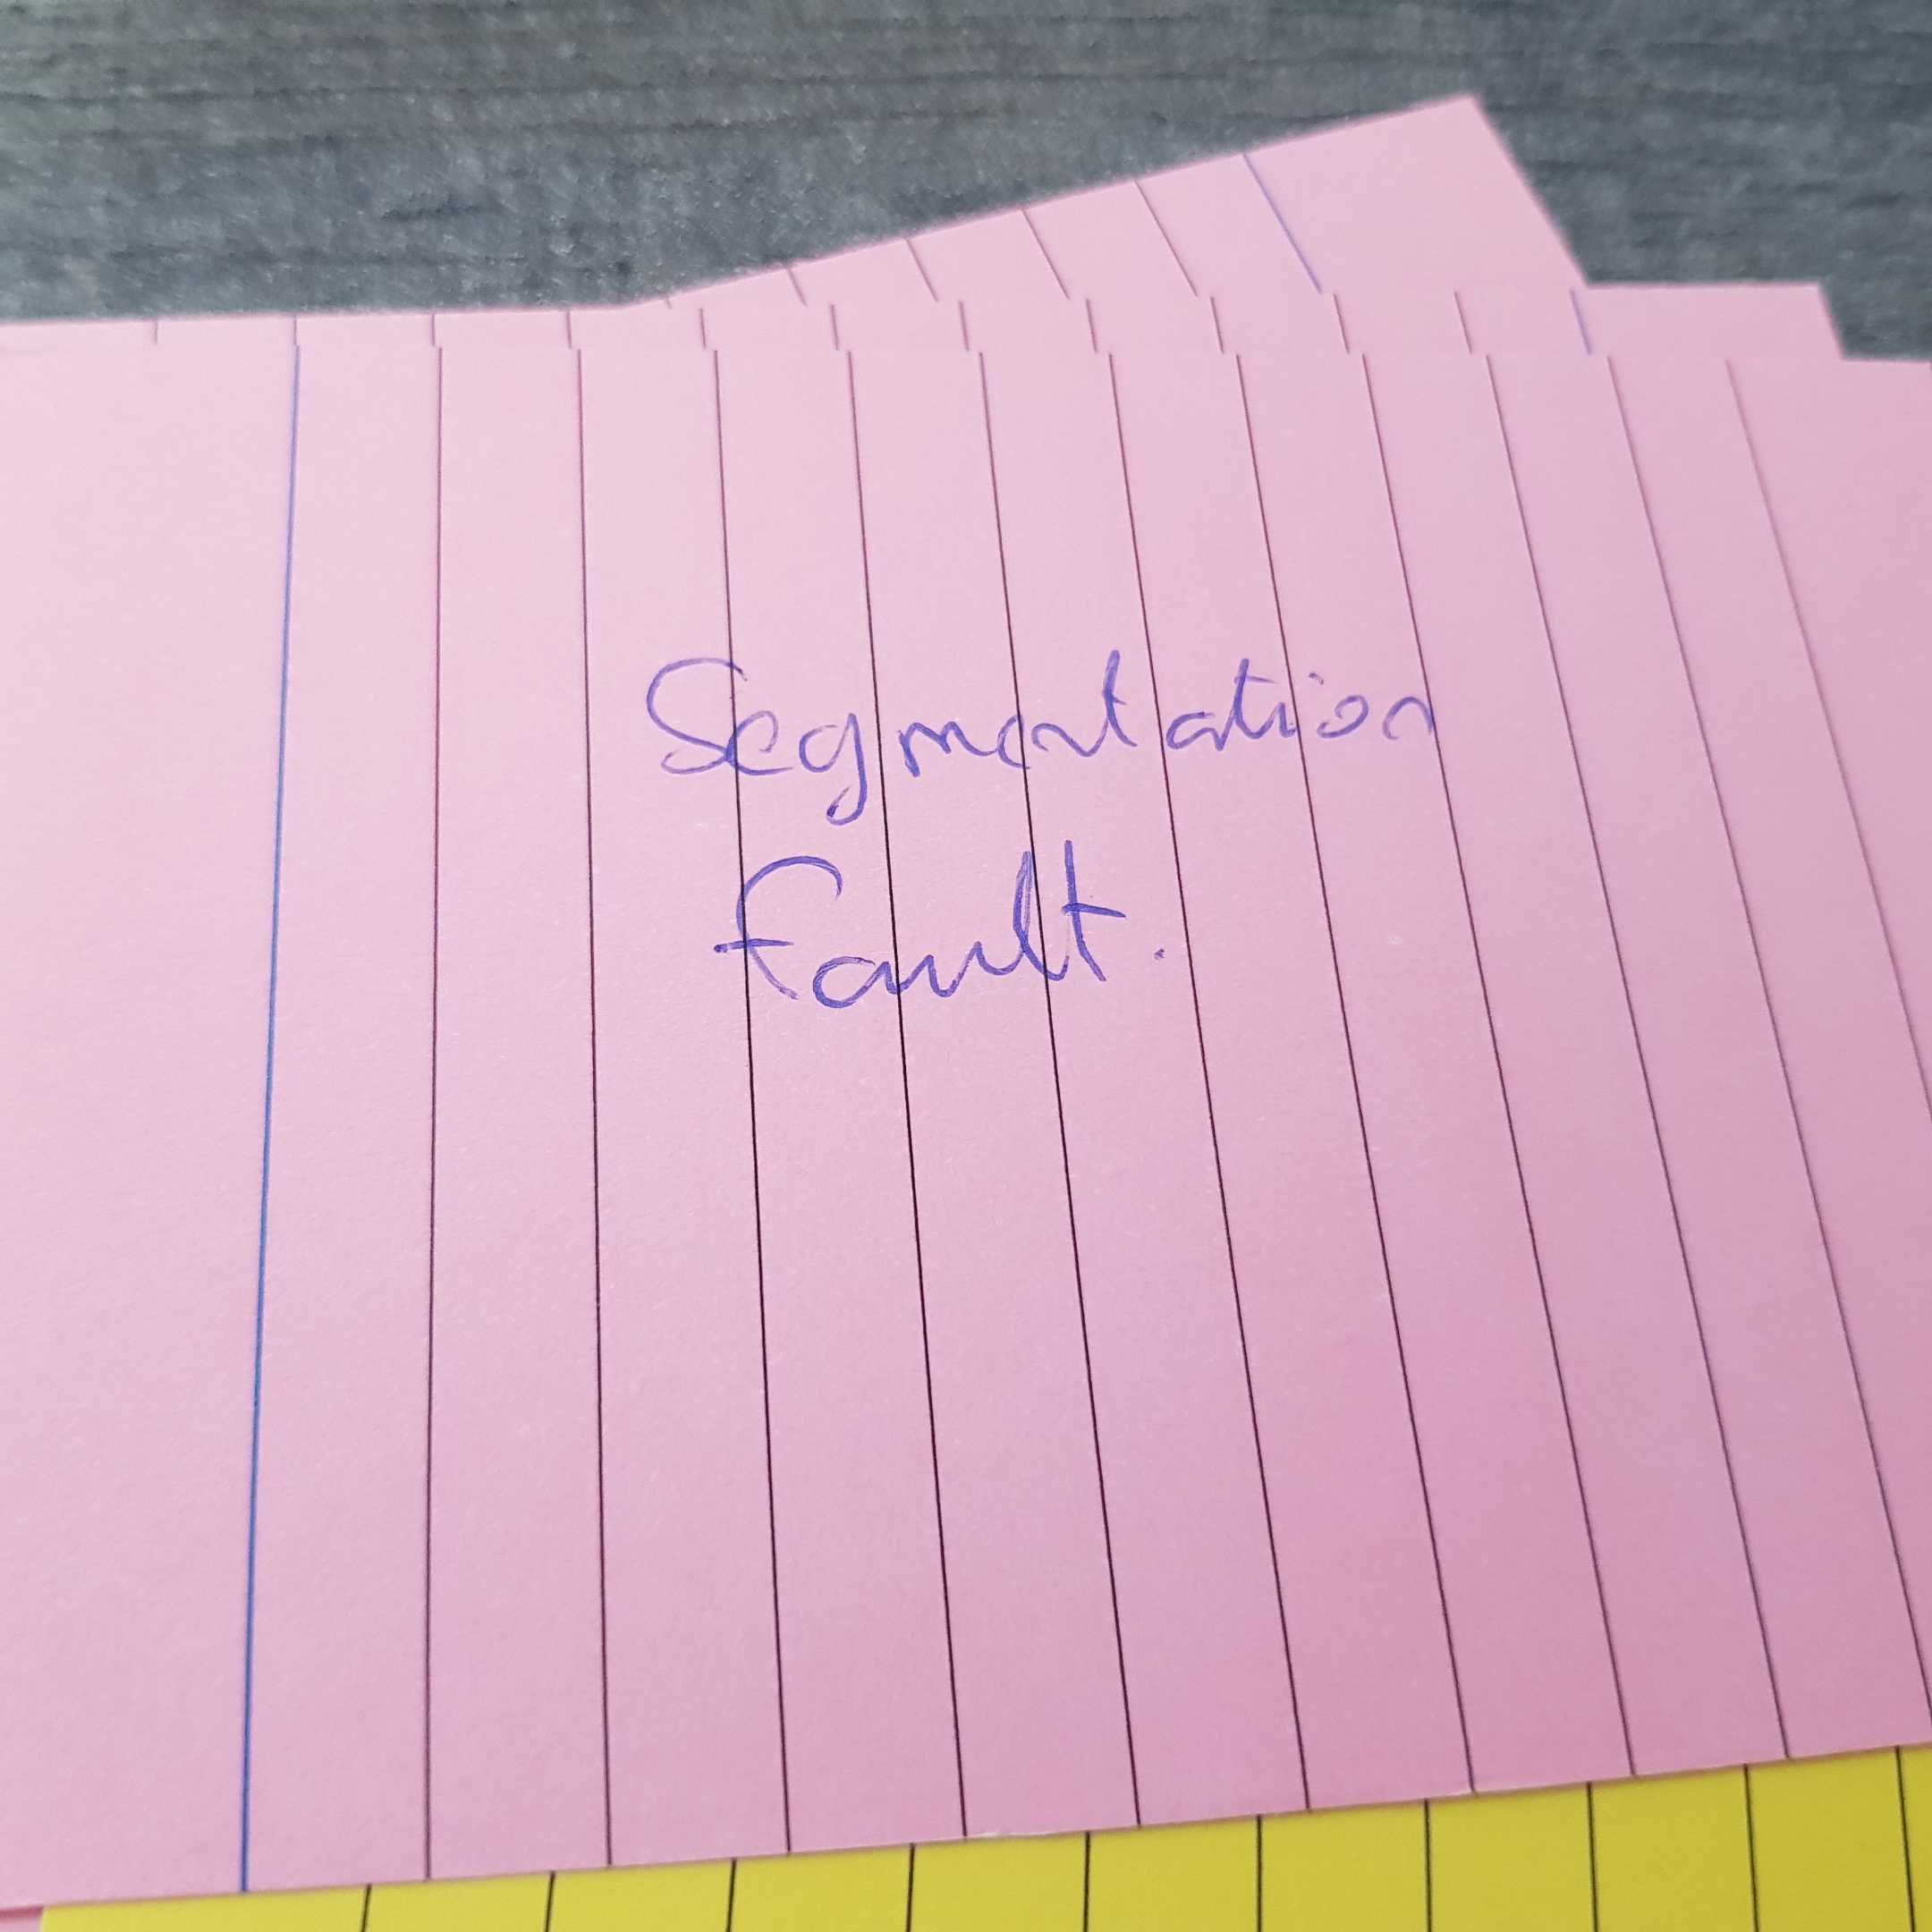 Segmentation
fault.